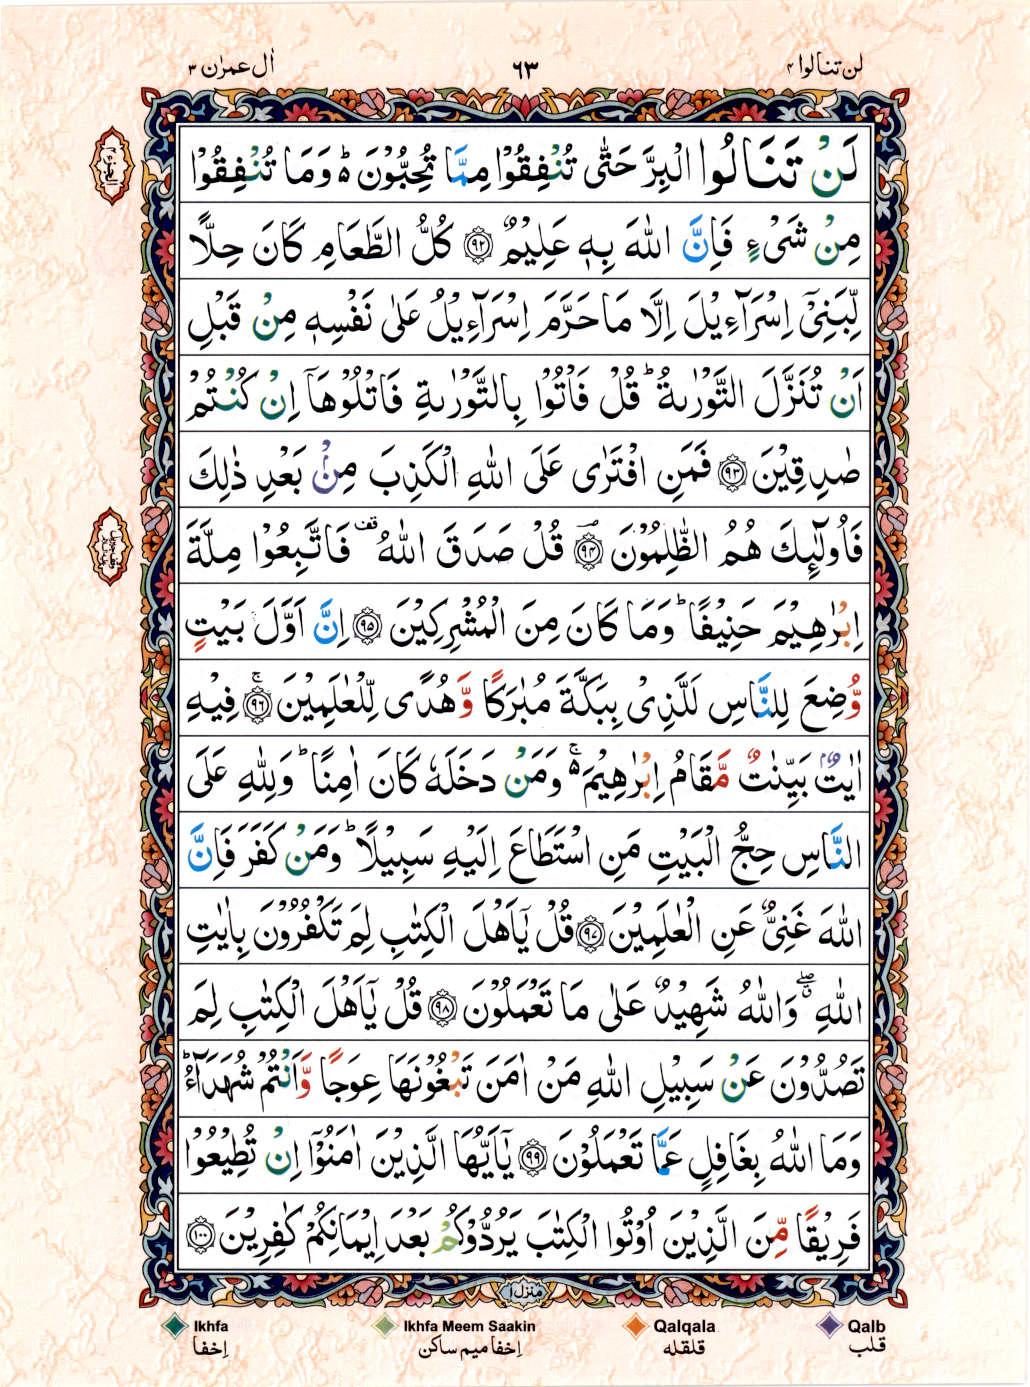 لن تنالوا ۴
۶۳
اٰل عمرٰن ۳
لَنْ تَنَالُوا الْبِرَّ حَتّٰى تُنْفِقُوْا مِمَّا تُحِبُّوْنَ ؕ وَمَا تُنْفِقُوْا
مِنْ شَیْءٍ فَاِنَّ اللّٰهَ بِهٖ عَلِيْمٌ ﴿۹۲﴾ كُلُّ الطَّعَامِ كَانَ حِلًّا
لِّبَنِیْۤ اِسْرَآءِيْلَ اِلَّا مَا حَرَّمَ اِسْرَآءِيْلُ عَلٰى نَفْسِهٖ مِنْ قَبْلِ
اَنْ تُنَزَّلَ التَّوْرٰىةُ ؕ قُلْ فَاْتُوْا بِالتَّوْرٰىةِ فَاتْلُوْهَاۤ اِنْ كُنْتُمْ
صٰدِقِيْنَ ﴿۹۳﴾ فَمَنِ افْتَرٰى عَلَى اللّٰهِ الْكَذِبَ مِنْۢ بَعْدِ ذٰلِكَ
فَاُولٰٓئِكَ هُمُ الظّٰلِمُوْنَ ﴿۹۴﴾ قُلْ صَدَقَ اللّٰهُ ۟ فَاتَّبِعُوْا مِلَّةَ
اِبْرٰهِيْمَ حَنِيْفًا ؕ وَمَا كَانَ مِنَ الْمُشْرِكِيْنَ ﴿۹۵﴾ اِنَّ اَوَّلَ بَيْتٍ
وُّضِعَ لِلنَّاسِ لَلَّذِیْ بِبَكَّةَ مُبٰرَكًا وَّهُدًى لِّلْعٰلَمِيْنَ ﴿۹۶﴾ۚ فِيْهِ
اٰيٰتٌۢ بَيِّنٰتٌ مَّقَامُ اِبْرٰهِيْمَ ۚ۬ وَمَنْ دَخَلَهٗ كَانَ اٰمِنًا ؕ وَلِلّٰهِ عَلَى
النَّاسِ حِجُّ الْبَيْتِ مَنِ اسْتَطَاعَ اِلَيْهِ سَبِيْلًا ؕ وَمَنْ كَفَرَ فَاِنَّ
اللّٰهَ غَنِیٌّ عَنِ الْعٰلَمِيْنَ ﴿۹۷﴾ قُلْ يٰۤاَهْلَ الْكِتٰبِ لِمَ تَكْفُرُوْنَ بِاٰيٰتِ
اللّٰهِ ۖۗ وَاللّٰهُ شَهِيْدٌ عَلٰى مَا تَعْمَلُوْنَ ﴿۹۸﴾ قُلْ يٰۤاَهْلَ الْكِتٰبِ لِمَ
تَصُدُّوْنَ عَنْ سَبِيْلِ اللّٰهِ مَنْ اٰمَنَ تَبْغُوْنَهَا عِوَجًا وَّاَنْتُمْ شُهَدَآءُ ؕ
وَمَا اللّٰهُ بِغَافِلٍ عَمَّا تَعْمَلُوْنَ ﴿۹۹﴾ يٰۤاَيُّهَا الَّذِيْنَ اٰمَنُوْۤا اِنْ تُطِيْعُوْا
فَرِيْقًا مِّنَ الَّذِيْنَ اُوْتُوا الْكِتٰبَ يَرُدُّوْكُمْ بَعْدَ اِيْمَانِكُمْ كٰفِرِيْنَ ﴿۱۰۰﴾
منزل ۱
Ikhfa
Ikhfa Meem Saakin
Qalqala
Qalb
اِخفا
اِخفا میم ساکن
قلقله
قلب